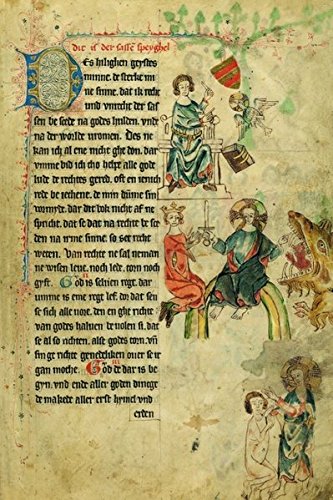 Dit is der sassen speyghel
Des hilighen geystes
minne. de sterke mi
ne sinne. dat ik recht
vnde vnrecht der sas
sen be scede na godes hulden. vnde
na der werlde vromen. Des ne
kan ich al eine nicht ghe don. dar
vmme bid ich tho helpe alle gode
lude de rechtes gered. oft en iench
rede be ieghene. de min dumme sin
vormyde. dar dit bok nicht af ne
spricht. dat se dat na rechte be sce
den na irme sinne. so set recht
weten. Van rechte ne sal neman
ne wisen leue. noch lede. torn noch
gyft. God is seluen regt. dar
vmme is eme regt lef. do dat sen
se sich alle vor. den en ght richte
van godes haluen be uolen si. dat
se al so richten. alse godes torn. vn
sin ge richte genedeliken ouer se ir
gan moghe. God de dar is be
gyn. vnd ende aller goden dinge. de
makede aller erst hymel vnd
erden